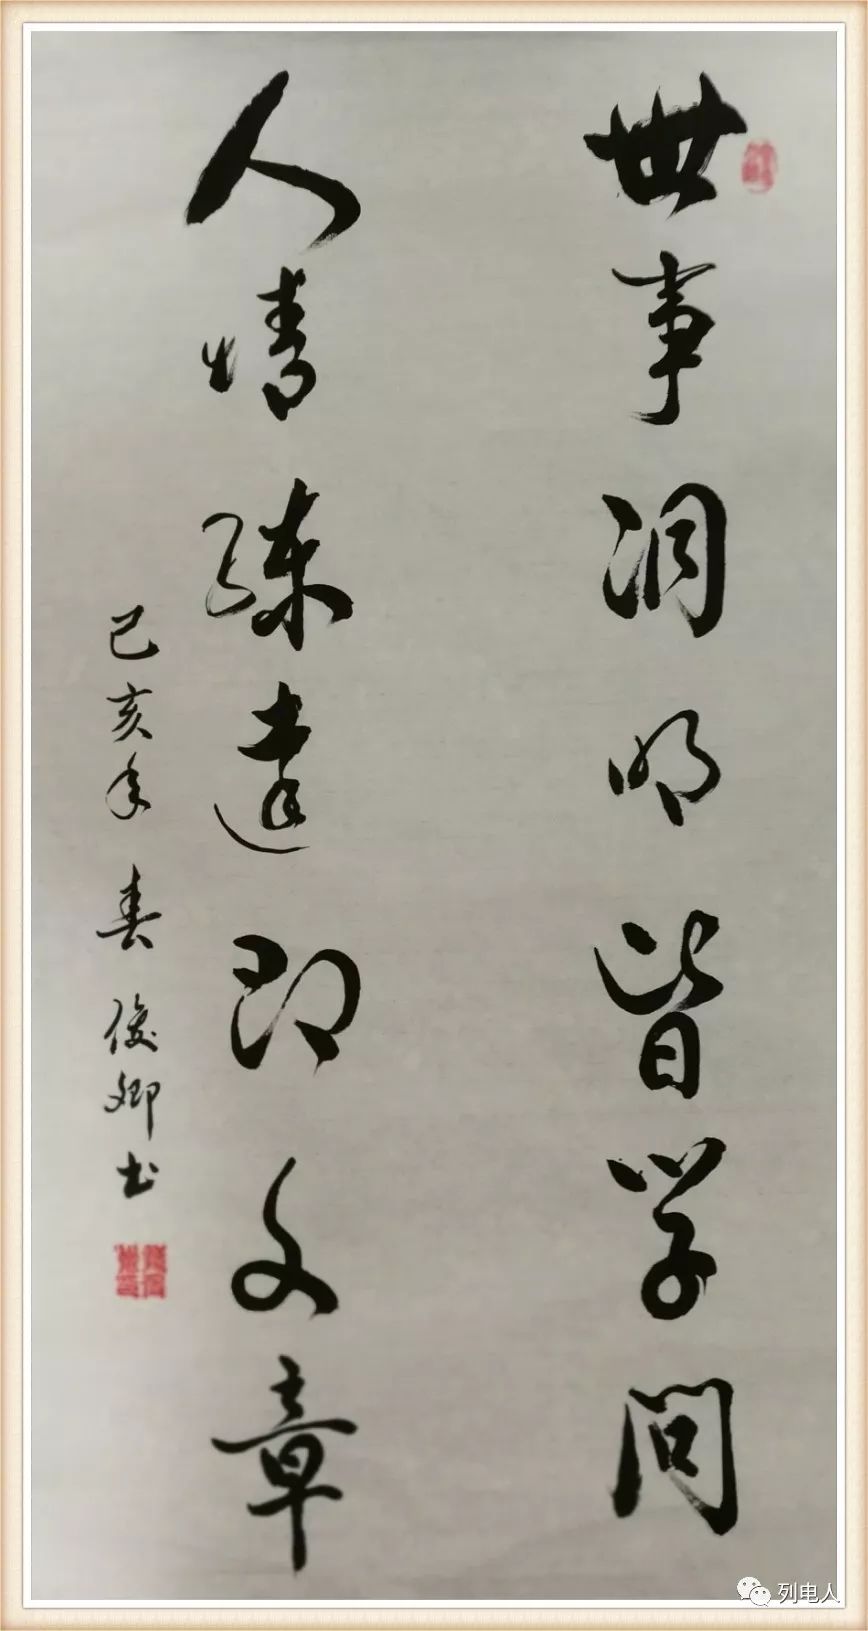 世事洞明皆学问
人情练达即文章
己亥年春俊卿书
列电人